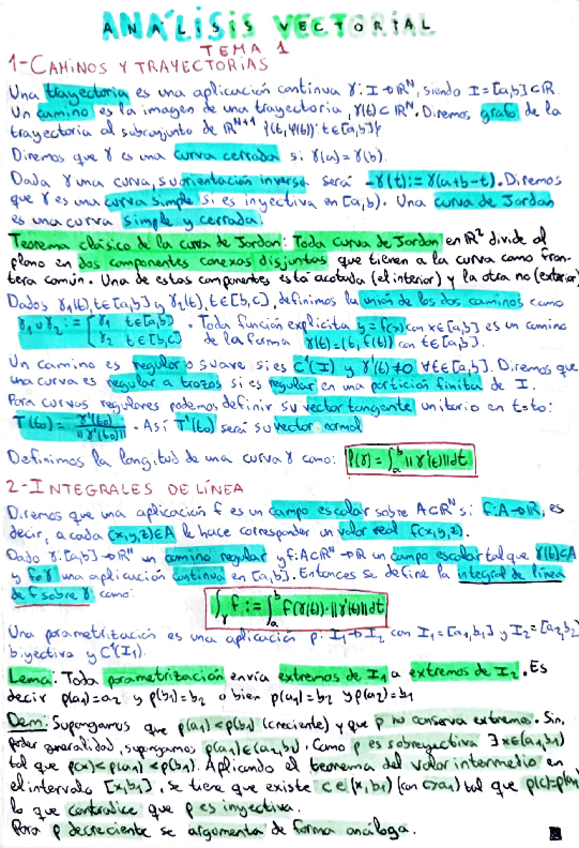 ANÁLISIS VECTORIAL
TEMA 1
1-CAMINOS Y TRAYECTORIAS
Una trayectoria es una aplicación continua γ: I→ℝᴺ, siendo I=[a,b]⊂ℝ.
Un camino es la imagen de una trayectoria, γ(t)⊂ℝᴺ. Diremos grafo de la
trayectoria al subconjunto de ℝᴺ⁺¹ {(t,γ(t)): t∈[a,b]}
Diremos que γ es una curva cerrada si γ(a)=γ(b).
Dada γ una curva, su orientación inversa será -γ(t):=γ(a+b-t). Diremos
que γ es una curva simple si es inyectiva en [a,b). Una curva de Jordan
es una curva simple y cerrada.
Teorema clásico de la curva de Jordan: Toda curva de Jordan en ℝ² divide al
plano en dos componentes conexas disjuntas que tienen a la curva como fron-
tera común. Una de estas componentes está acotada (el interior) y la otra no (exterior)
Dados γ₁(t), t∈[a,b] y γ₂(t), t∈[b,c], definimos la unión de los dos caminos como
γ₁∪γ₂:={γ₁ t∈[a,b] . Toda función explícita y=f(x) con x∈[a,b] es un camino
γ₂ t∈[b,c] de la forma γ(t)=(t,f(t)) con t∈[a,b].
Un camino es regular o suave si es C¹(I) y γ'(t)≠0 ∀t∈[a,b]. Diremos que
una curva es regular a trozos si es regular en una partición finita de I.
Para curvas regulares podemos definir su vector tangente unitario en t=t₀:
T(t₀)=γ'(t₀)/||γ'(t₀)||. Así T'(t₀) será su vector normal
Definimos la longitud de una curva γ como: l(γ)=∫ₐᵇ||γ'(t)||dt
2-INTEGRALES DE LÍNEA
Diremos que una aplicación f es un campo escalar sobre A⊂ℝᴺ si: f:A→ℝ, es
decir, a cada (x,y,z)∈A le hace corresponder un valor real f(x,y,z).
Dado γ:[a,b]→ℝᴺ un camino regular y f:A⊂ℝᴺ→ℝ un campo escalar tal que γ(t)∈A
y f∘γ una aplicación continua en [a,b]. Entonces se define la integral de línea
de f sobre γ como:
∫γ f:=∫ₐᵇ f(γ(t))·||γ'(t)||dt
Una parametrización es una aplicación ρ: I₁→I₂ con I₁=[a₁,b₁] y I₂=[a₂,b₂]
biyectiva y C¹(I₁).
Lema: Toda parametrización envía extremos de I₁ a extremos de I₂. Es
decir ρ(a₁)=a₂ y ρ(b₁)=b₂ o bien ρ(a₁)=b₂ y ρ(a₂)=b₁
Dem: Supongamos que ρ(a₁)<ρ(b₁) (creciente) y que ρ no conserva extremos. Sin
perder generalidad, supongamos ρ(a₁)∈(a₂,b₂). Como ρ es sobreyectiva ∃x∈(a₁,b₁)
tal que ρ(x)<ρ(a₁)<ρ(b₁). Aplicando el teorema del valor intermedio en
el intervalo [x,b₁], se tiene que existe c∈(x,b₁) (con c>a₁) tal que ρ(c)=ρ(a₁)
lo que contradice que ρ es inyectiva.
Para ρ decreciente se argumenta de forma análoga.